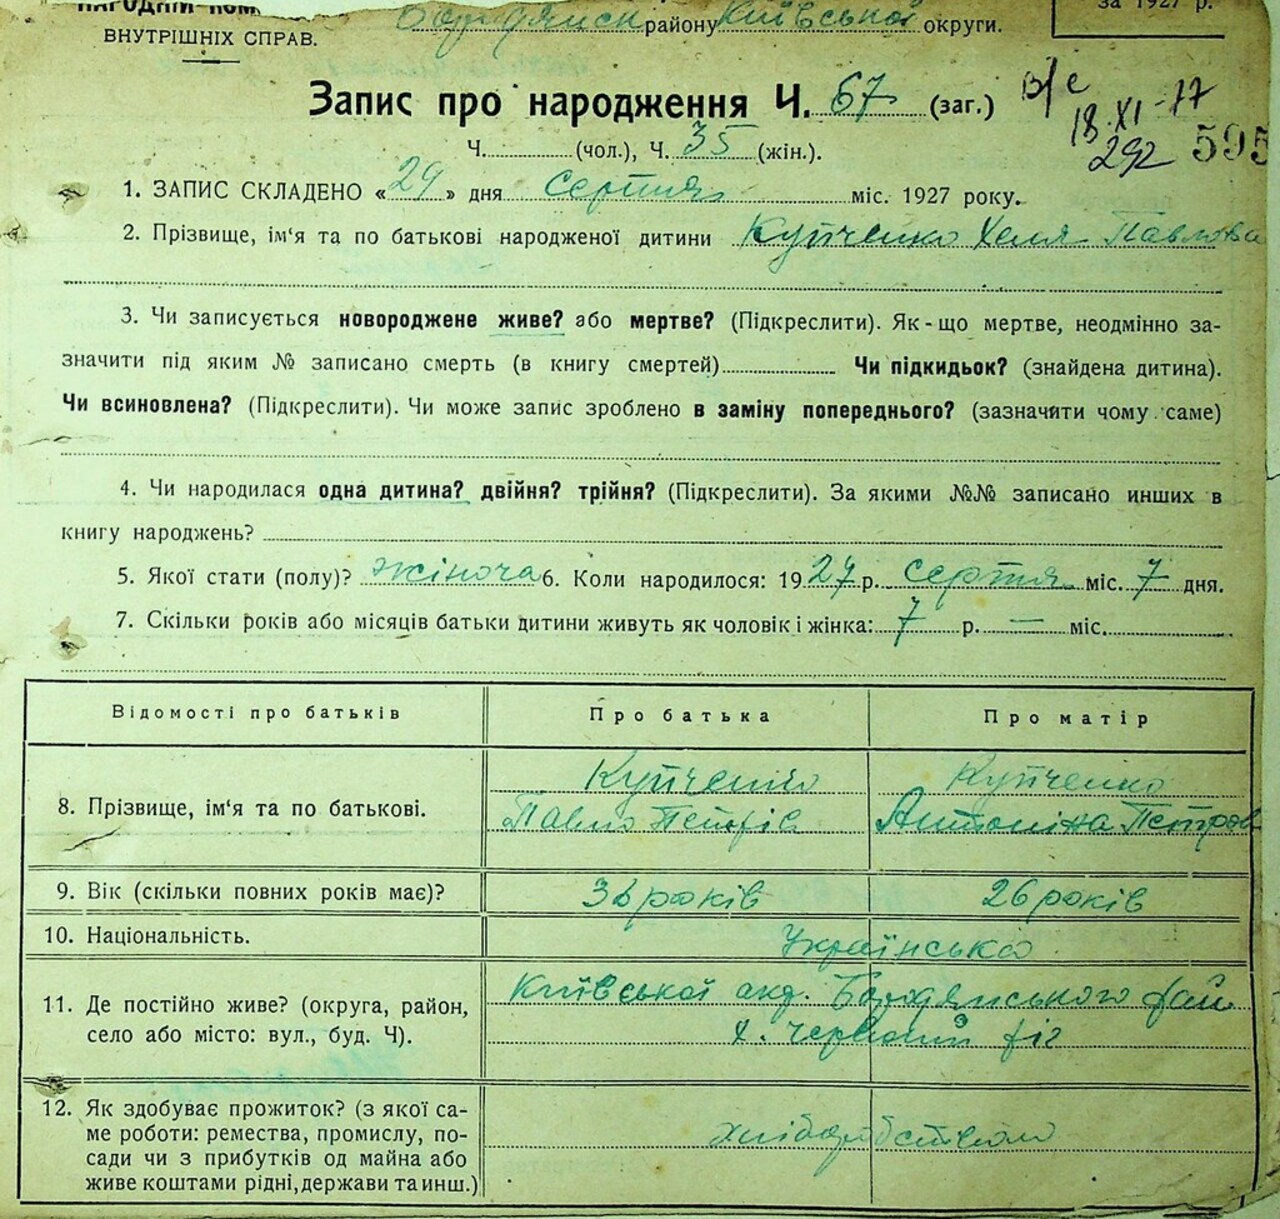 НАРОДНІЙ КОМ
ВНУТРІШНІХ СПРАВ.
Бородянск району Київської округи.
за 1927 р.
Запис про народження Ч. 67 (заг.)
18.XI-77
292
595
Ч. (чол.), Ч. 35 (жін.).
1. ЗАПИС СКЛАДЕНО « 29 » дня серпня міс. 1927 року.
2. Прізвище, ім‘я та по батькові народженої дитини Купченко Хеля Павлова
3. Чи записується новороджене живе? або мертве? (Підкреслити). Як-що мертве, неодмінно за-
значити під яким № записано смерть (в книгу смертей) Чи підкидьок? (знайдена дитина).
Чи всиновлена? (Підкреслити). Чи може запис зроблено в заміну попереднього? (зазначити чому саме)
4. Чи народилася одна дитина? двійня? трійня? (Підкреслити). За якими №№ записано инших в
книгу народжень?
5. Якої стати (полу)? жіноча 6. Коли народилося: 1927 р. серпня міс. 7 дня.
7. Скільки років або місяців батьки дитини живуть як чоловік і жінка: 7 р. — міс.
Відомості про батьків Про батька Про матір
8. Прізвище, ім‘я та по батькові. Купченко Павло Петрів Купченко Антоніна Петрова
9. Вік (скільки повних років має)? років 26 років
10. Національність. Українська
11. Де постійно живе? (округа, район, Київської окр. Бородянського рай
село або місто: вул., буд. Ч). х. червоний ріг
12. Як здобуває прожиток? (з якої са-
ме роботи: ремества, промислу, по- хліборобством
сади чи з прибутків од майна або
живе коштами рідні, держави та инш.)